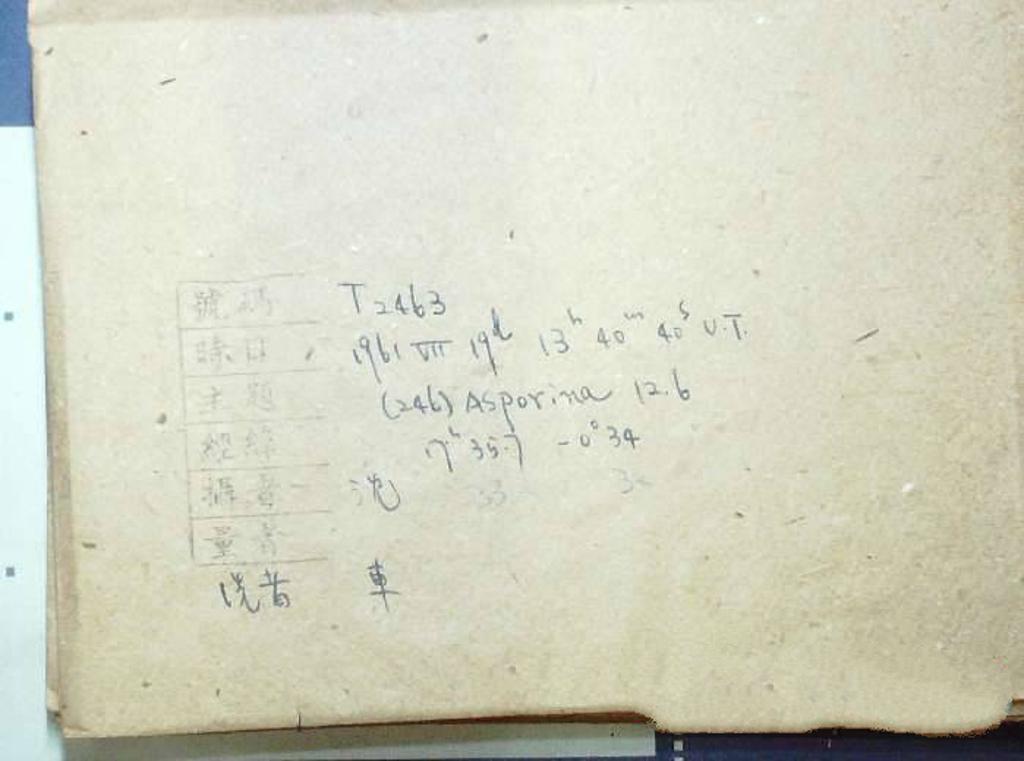 號碼 T2463
時日 1961 VII 19d 13h 40m 40s U.T.
主題 (246) Asporina 12.6
經緯 17h 35.7 -0°34
攝者 沈 33 3
量者
洗者 車